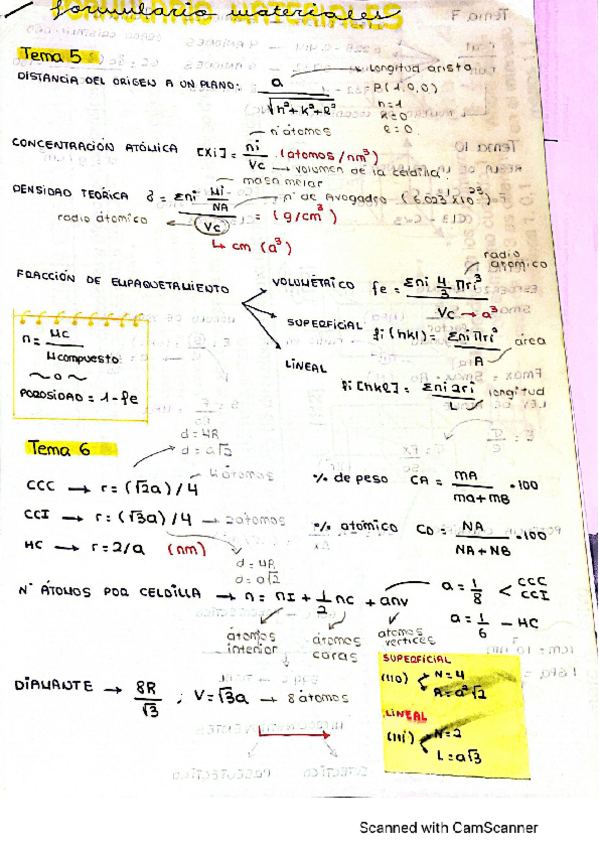 formulario materiales
FORMULARIO MATERIALES
Tema 5
DISTANCIA DEL ORIGEN A UN PLANO: a / √h²+k²+l² → longitud arista
P(1,0,0)
h=1
k=0
l=0
CONCENTRACIÓN ATÓMICA [Xi] = ni / Vc (atomos/nm³)
nº átomos
volumen de la celdilla
DENSIDAD TEÓRICA δ = Σni Mi/NA / Vc = (g/cm³)
masa molar
nº de Avogadro (6.023x10²³)
radio átomico
↳ cm (a³)
FRACCIÓN DE EMPAQUETAMIENTO
VOLUMÉTRICO fe = Σni 4/3 πri³ / Vc → a³
radio atomico
SUPERFICIAL fi(hkl) = Σni πri² / A
área
LINEAL fi[hkl] = Σni 2ri / L
longitud
n = Mc / Mcompuesto
POROSIDAD = 1-fe
Tema 6
d=4R
d=a√3
CCC → r=(√2a)/4
4 átomos
CCI → r=(√3a)/4 → 2 atomos
HC → r=2/a (nm)
d=4R
d=a√2
% de peso CA = mA / mA+mB ·100
% atómico CD = NA / NA+NB ·100
Nº ÁTOMOS POR CELDILLA → n = nI + 1/2 nc + anv
átomos interior
átomos caras
atomos vertices
a = 1/8 < CCC CCI
a = 1/6 - HC
DIAMANTE → 8R/√3 ; V=√3a → 8 átomos
SUPERFICIAL
(110) N=4
A=a²√2
LINEAL
(111) N=2
L=a√3
Scanned with CamScanner